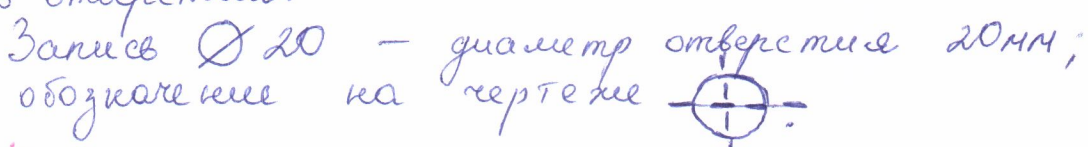 Запись ⌀ 20 – диаметр отверстия 20мм;
обозначение на чертеже .